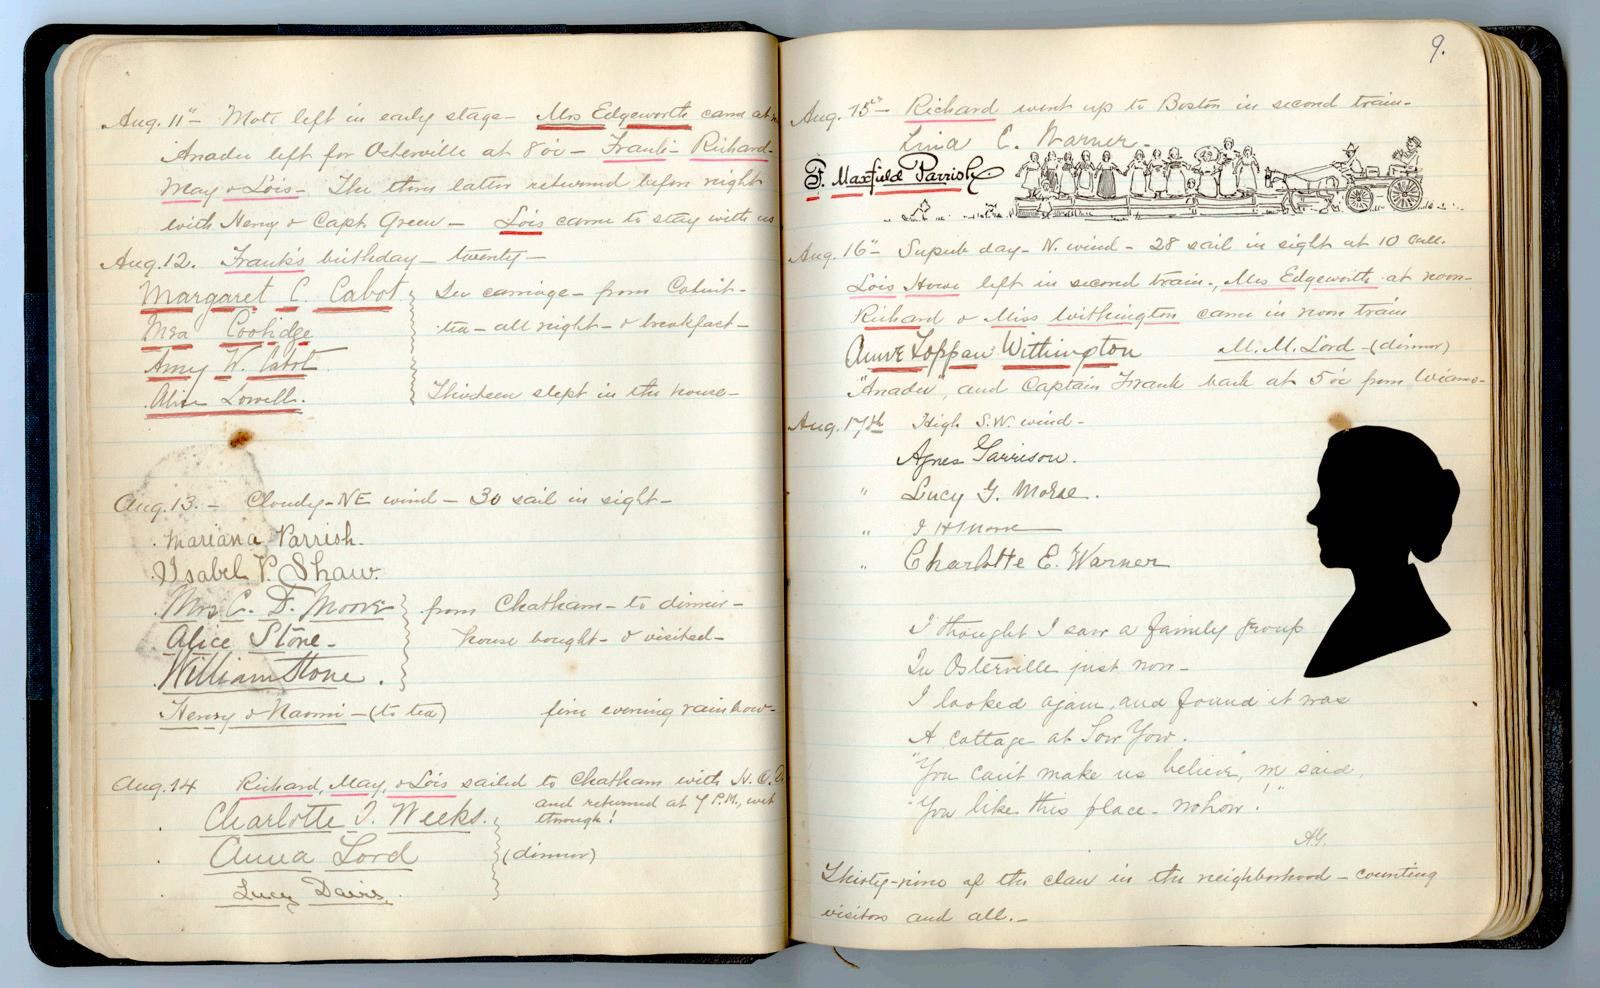 Aug. 11" – Mott left in early stage – Mrs Edgeworth came at
"Anadii left for Osterville at 8 oc – Frank – Richard –
May & Lois – The three latter returned before night
with Henry & Capt. Green – Lois came to stay with us
Aug. 12. Frank's birthday – twenty –
Margaret C. Cabot
In carriage – from Cotuit –
Mrs Coolidge
tea – all night – & breakfast –
Amy W. Cabot
Alice Lowell.
Thirteen slept in the house –
Aug. 13. – Cloudy – NE wind – 30 sail in sight –
Mariana Parrish.
Isabel P. Shaw.
Mrs C. D. Moore
from Chatham – to dinner –
Alice Stone –
house bought – & visited –
William Stone.
Henry & Naomi – (to tea) fine evening rainbow –
Aug. 14 Richard, May, & Lois sailed to Chatham with N.
and returned at 7 P.M., wet
through!
Charlotte T. Weeks.
Anna Lord
(dinner)
Lucy Davis.
9.
Aug. 15" – Richard went up to Boston in second train –
Lina C. Warner –
F. Maxfield Parrish
Aug. 16" – Superb day – N. wind – 28 sail in sight at 10
Lois Howe left in second train., Mrs Edgeworth at noon –
Richard & Miss Withington came in noon train
Anne Toppan Withington M. M. Lord – (dinner)
"Anadii", and Captain Frank back at 5 oc from Wiano –
Aug. 17th High S.W. wind –
Agnes Garrison.
" Lucy G. Morse.
" J H Morse
" Charlotte E. Warner
I thought I saw a family group
In Osterville just now –
I looked again, and found it was
A cottage at Sow Yow.
"You can't make us believe", we said,
"You like this place – nohow!"
AG.
Thirty-nine of the clan in the neighborhood – counting
visitors and all. –